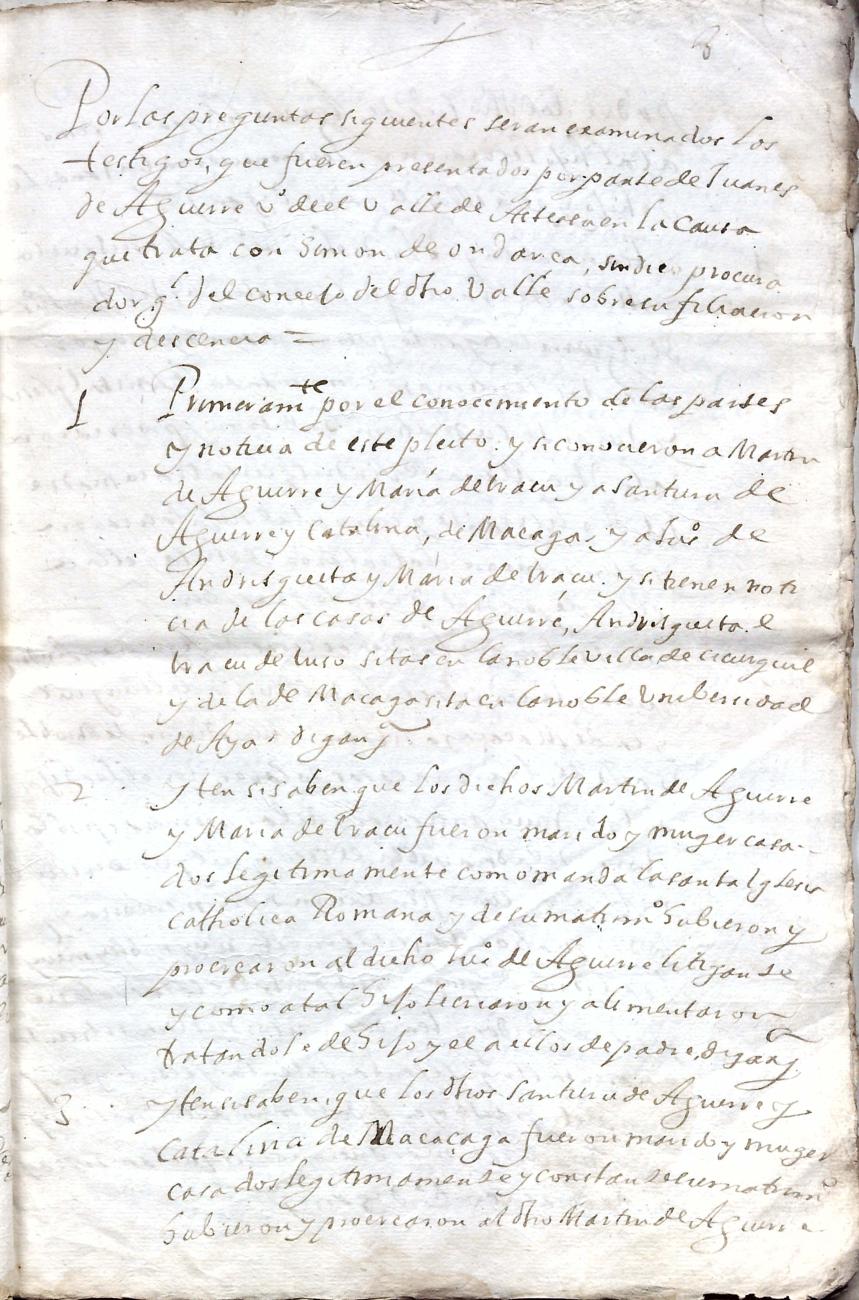 8
Por las preguntas siguientes seran examinados los
testigos, que fueren presentados por parte de Juanes
de Aguirre vº de el valle de Arteasa en la causa
que trata con Simon de ondarça, sindico procura
dor gl del concejo del dho valle sobre su filiacion
y descenca =
1 Primeramte por el conocimiento de las partes
y noticia de este pleito. y si conocieron a Martin
de Aguirre y María de Iracu y a Santuru de
Aguirre y Catalina, de Macaga, y a Juº de
Andrisgueta y María de Iracu. y si tienen noti
cia de las casas de Aguirre, Andrisgueta. e
Iracu de suso sitas en la noble villa de cicurquil
y de la de Macaga sita en la noble Vnibersidad
de Aya digan q
2 yten si saben que los dichos Martin de Aguirre
y Maria de Iracu fueron marido y muger casa-
dos legitimamente como manda la santa Iglesia
catholica Romana y de su matrimº hubieron y
procrearon al dicho Juº de Aguirre litigante
y como a tal hijo le criaron y alimentaron
tratandole de hijo y el a ellos de padre, digan q
3 yten si saben, que los dhos Santuru de Aguirre y
Catalina de Macaçaga fueron marido y muger
casados legitimamente y constante su matrimº
hubieron y procrearon al dho Martin de Aguirre